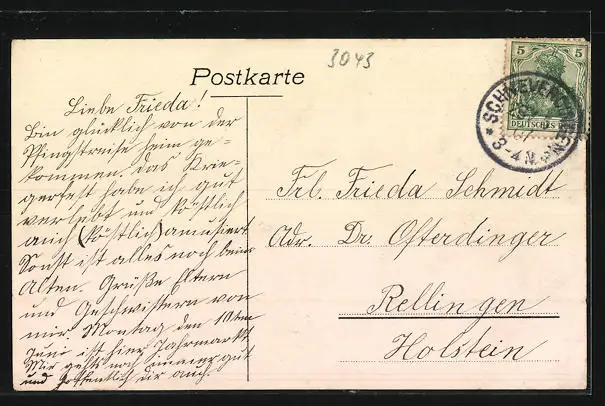 3043
Postkarte
5 5
DEUTSCHES
SCHNEVERDINGEN
3-4 N.
Liebe Frieda!
Bin glücklich von der
Pfingstreise heim ge-
kommen. Das Krie-
gerfest habe ich gut
verlebt und köstlich
auch (köstlich) amusiert
Sonst ist alles noch beim
Alten. Grüße Eltern
und Geschwistern von
mir. Montag den 10ten
Juni ist hier Jahrmarkt
Mir geht noch immer gut
und hoffentlich Dir auch.
Frl. Frieda Schmidt
Adr. Dr. Ofterdinger
Rellingen
Holstein